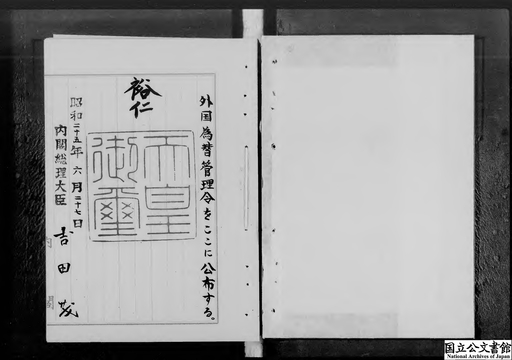 外国為替管理令をここに公布する。
裕仁
天皇
御璽
昭和二十五年六月二十七日
内閣総理大臣 吉田茂
内
閣
国立公文書館
National Archives of Japan